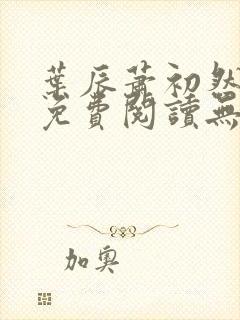 葉辰蕭初然
免費閱讀無
加奧